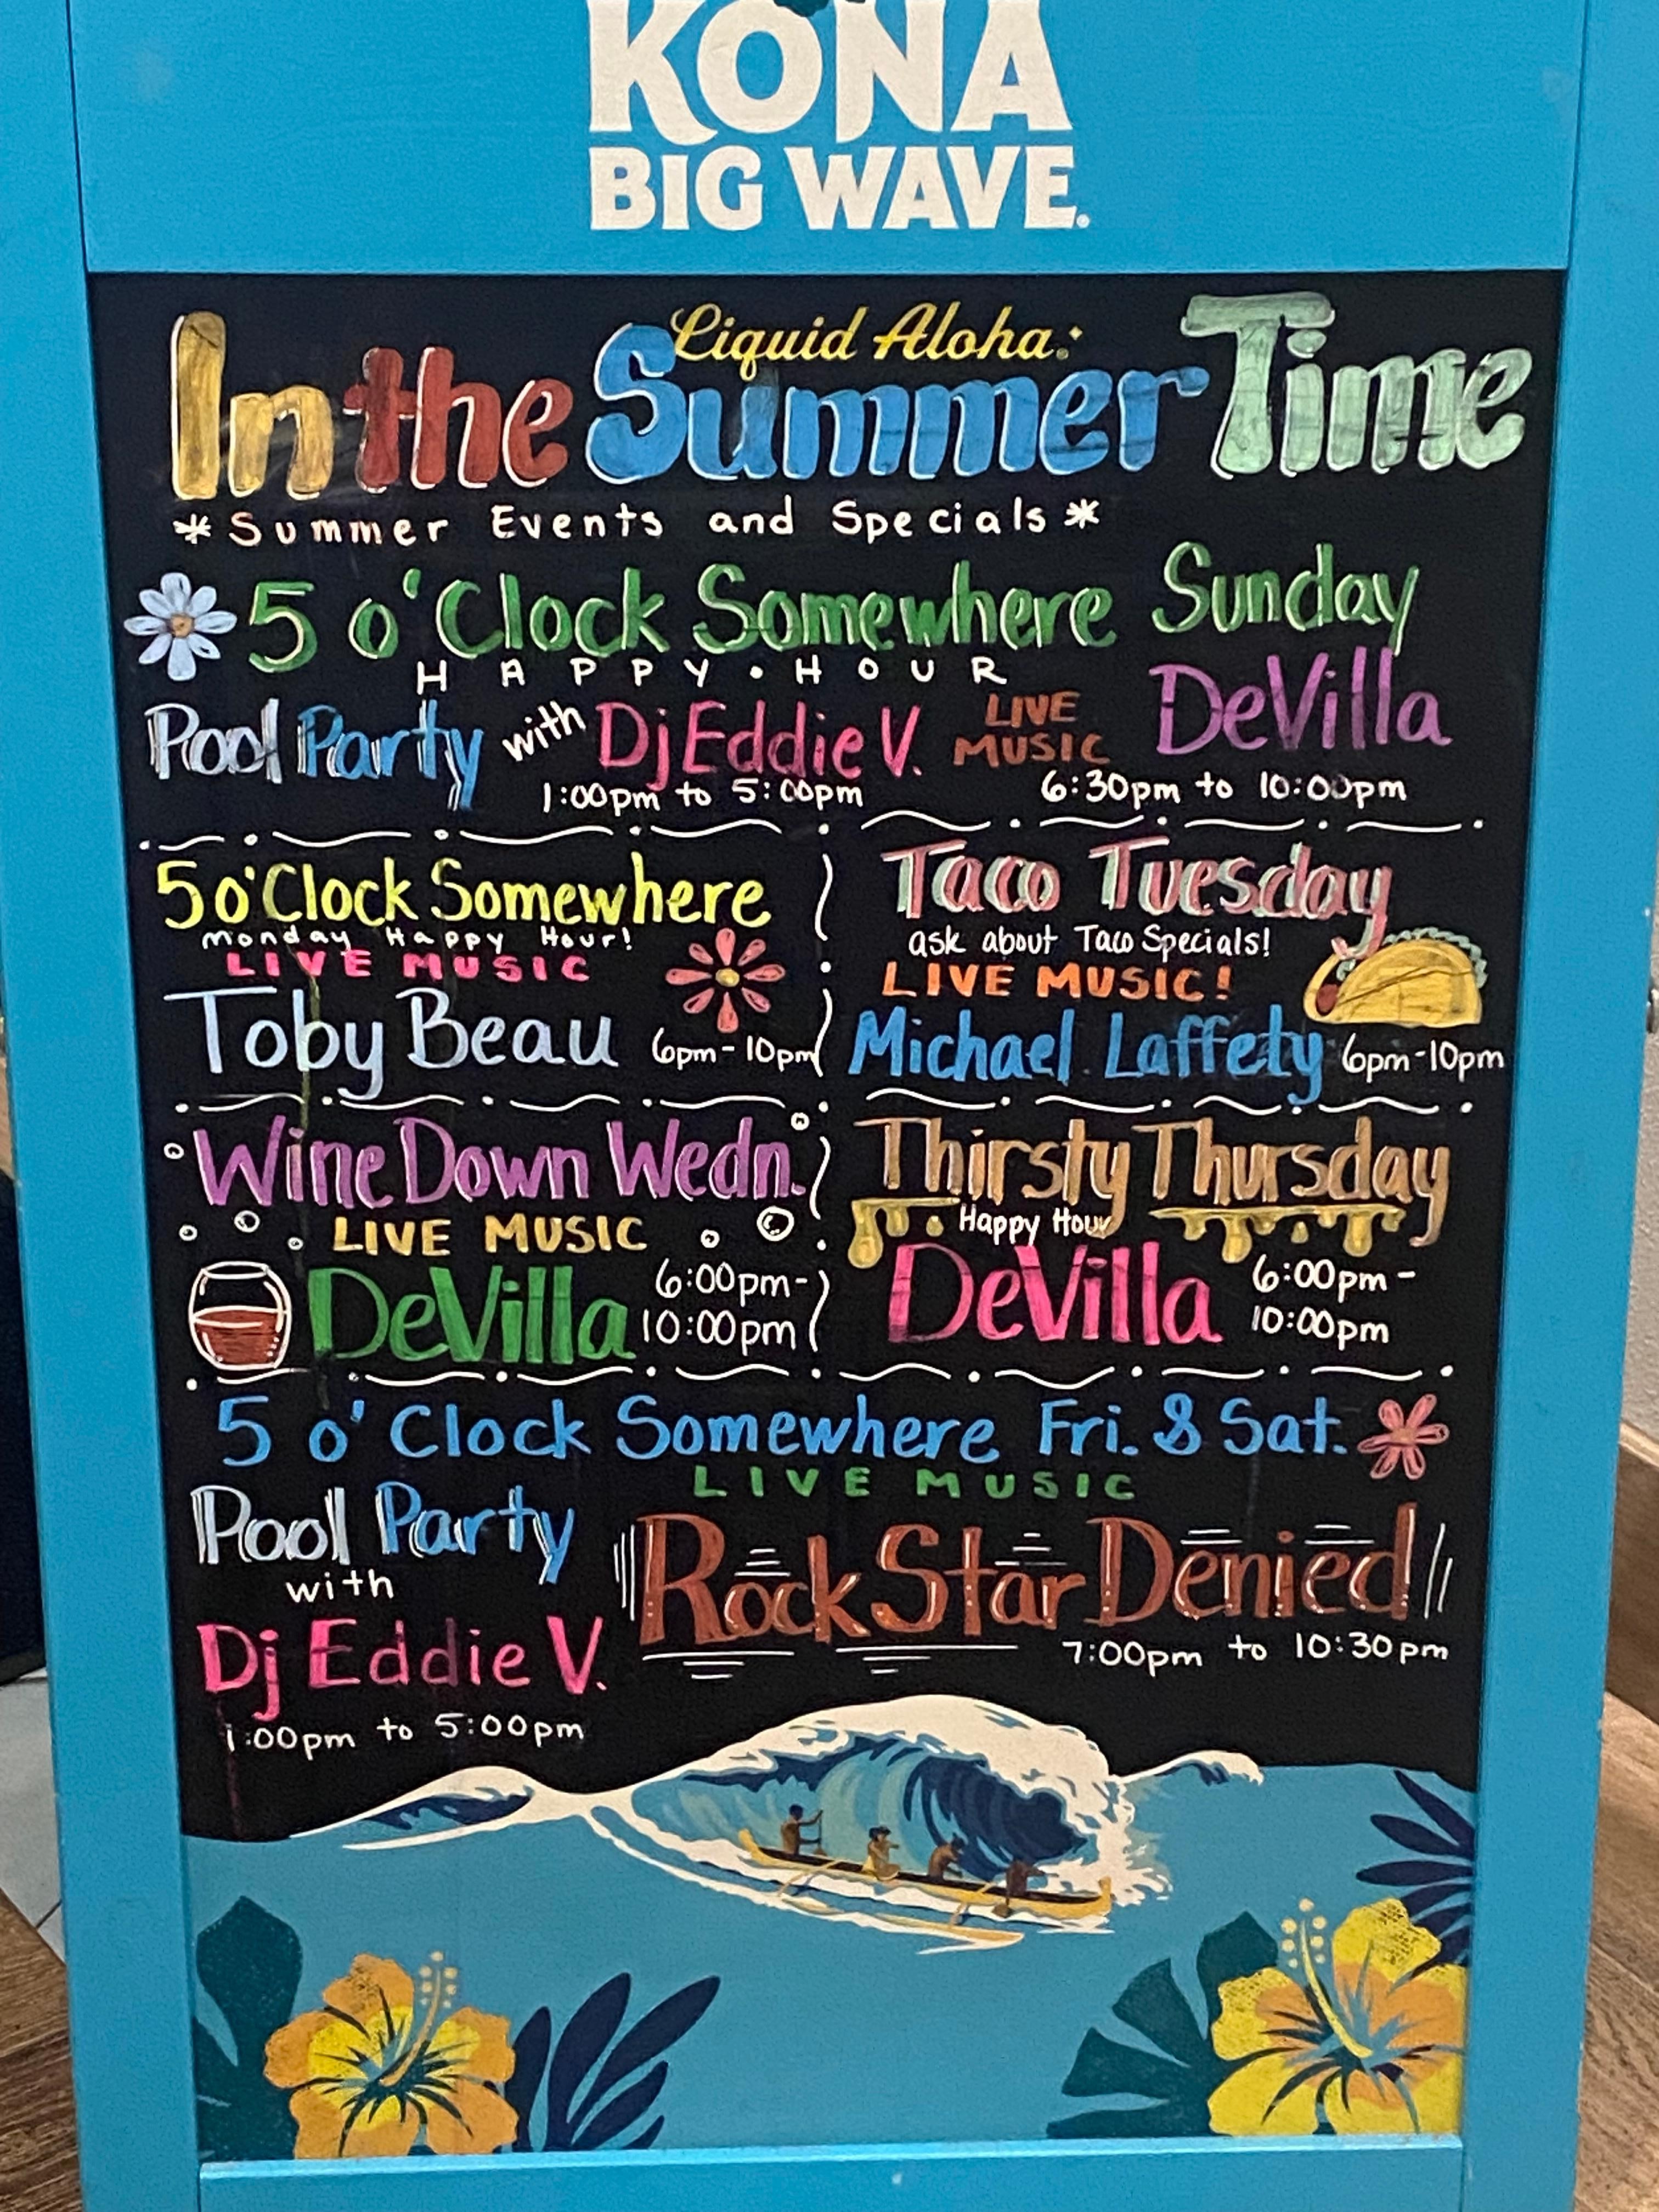 KONA
BIG WAVE.
Liquid Aloha.
In the Summer Time
*Summer Events and Specials*
5 o'Clock Somewhere Sunday
HAPPY • HOUR
Pool Party with Dj Eddie V.
1:00pm to 5:00pm
LIVE
MUSIC
DeVilla
6:30pm to 10:00pm
5 o'Clock Somewhere
Monday Happy Hour!
LIVE MUSIC
Toby Beau 6pm-10pm
Taco Tuesday
ask about Taco Specials!
LIVE MUSIC!
Michael Laffety 6pm-10pm
Wine Down Wedn.
LIVE MUSIC
DeVilla 6:00pm-
10:00pm
Thirsty Thursday
Happy Hour
DeVilla 6:00pm-
10:00pm
5 o'Clock Somewhere Fri. & Sat.
LIVE MUSIC
Pool Party
with
Dj Eddie V.
1:00pm to 5:00pm
Rock Star Denied
7:00pm to 10:30pm